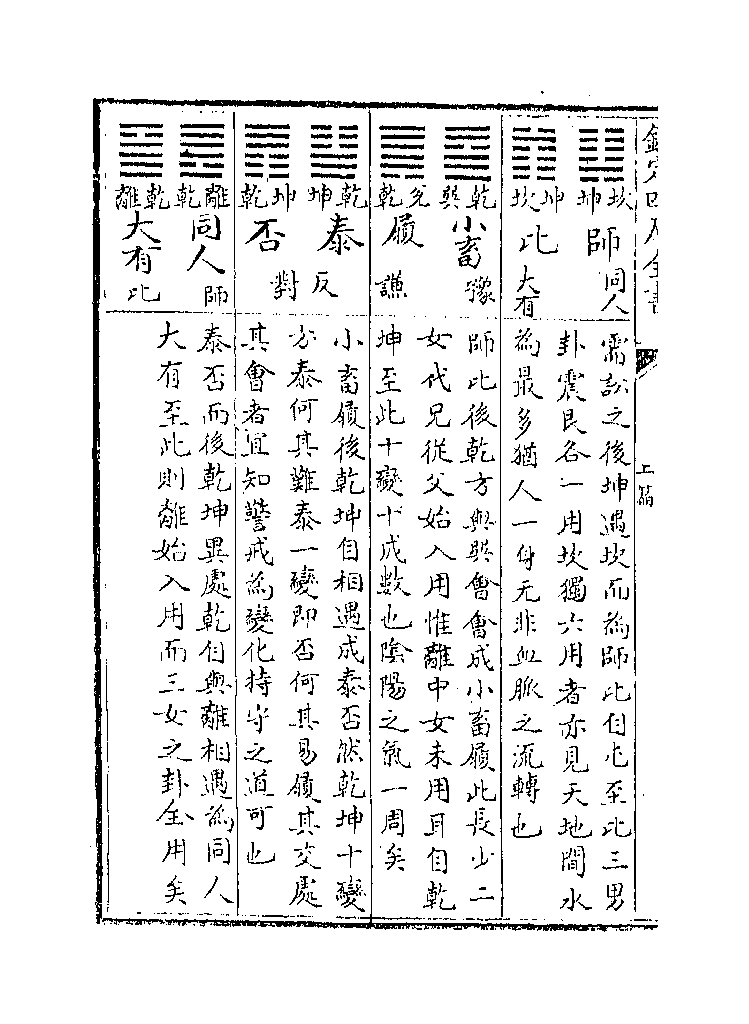 欽定四庫全書
上篇
坎坤
師
同人
坤坎
比
大有
需訟之後坤遇坎而為師比自屯至此三男
卦震艮各一用坎獨六用者亦見天地間水
為最多猶人一身无非血脈之流轉也
乾巽
小畜
豫
兌乾
履
謙
師比後乾方與巽會會成小畜履此長少二
女代兄從父始入用惟離中女未用耳自乾
坤至此十變十成數也陰陽之氣一周矣
乾坤
泰
坤乾
否
反對
小畜履後乾坤自相遇成泰否然乾坤十變
方泰何其難泰一變即否何其易履其交處
其會者宜知警戒為變化持守之道可也
離乾
同人
師
乾離
大有
比
泰否而後乾坤異處乾自與離相遇為同人
大有至此則離始入用而三女之卦全用矣